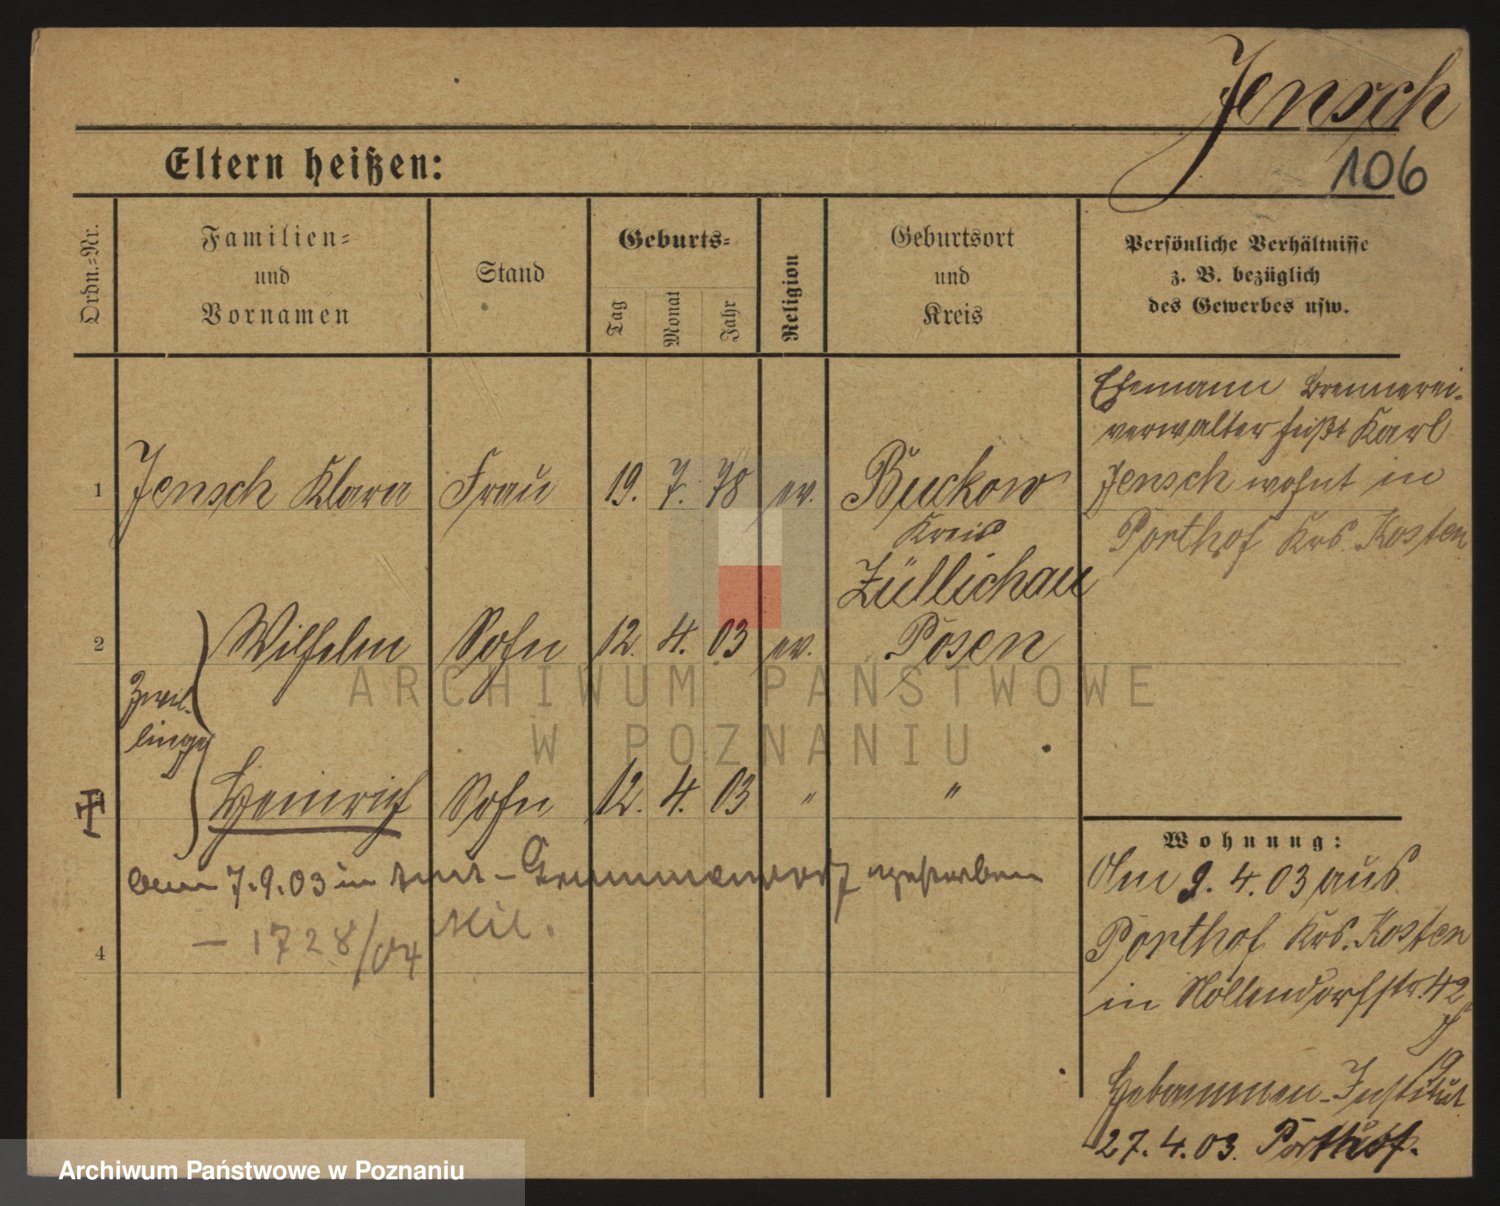 Jensch
Eltern heißen:
106
Ordn.=Nr.
Familien=
und
Vornamen
Stand
Geburts=
Tag
Monat
Jahr
Religion
Geburtsort
und
Kreis
Persönliche Verhältnisse
z. B. bezüglich
des Gewerbes usw.
Ehemann Brennerei-
verwalter heißt Karl
Jensch wohnt in
Porthof Krs. Kosten
1 Jensch Klara Frau 19. 7. 78 ev. Buckow
Kreis
Züllichau
2 Wilhelm Sohn 12. 4. 03 ev. Posen
Zwil-
linge
Heinrich Sohn 12. 4. 03 " "
am 7.9.03 in gestorben
– 1728/04
4
Wohnung:
Am 9. 4. 03 aus
Porthof Krs. Kosten
in Nollendorfstr. 42
Hebammen-Institut
27.4.03. Porthof.
ARCHIWUM PAŃSTWOWE
W POZNANIU
Archiwum Państwowe w Poznaniu